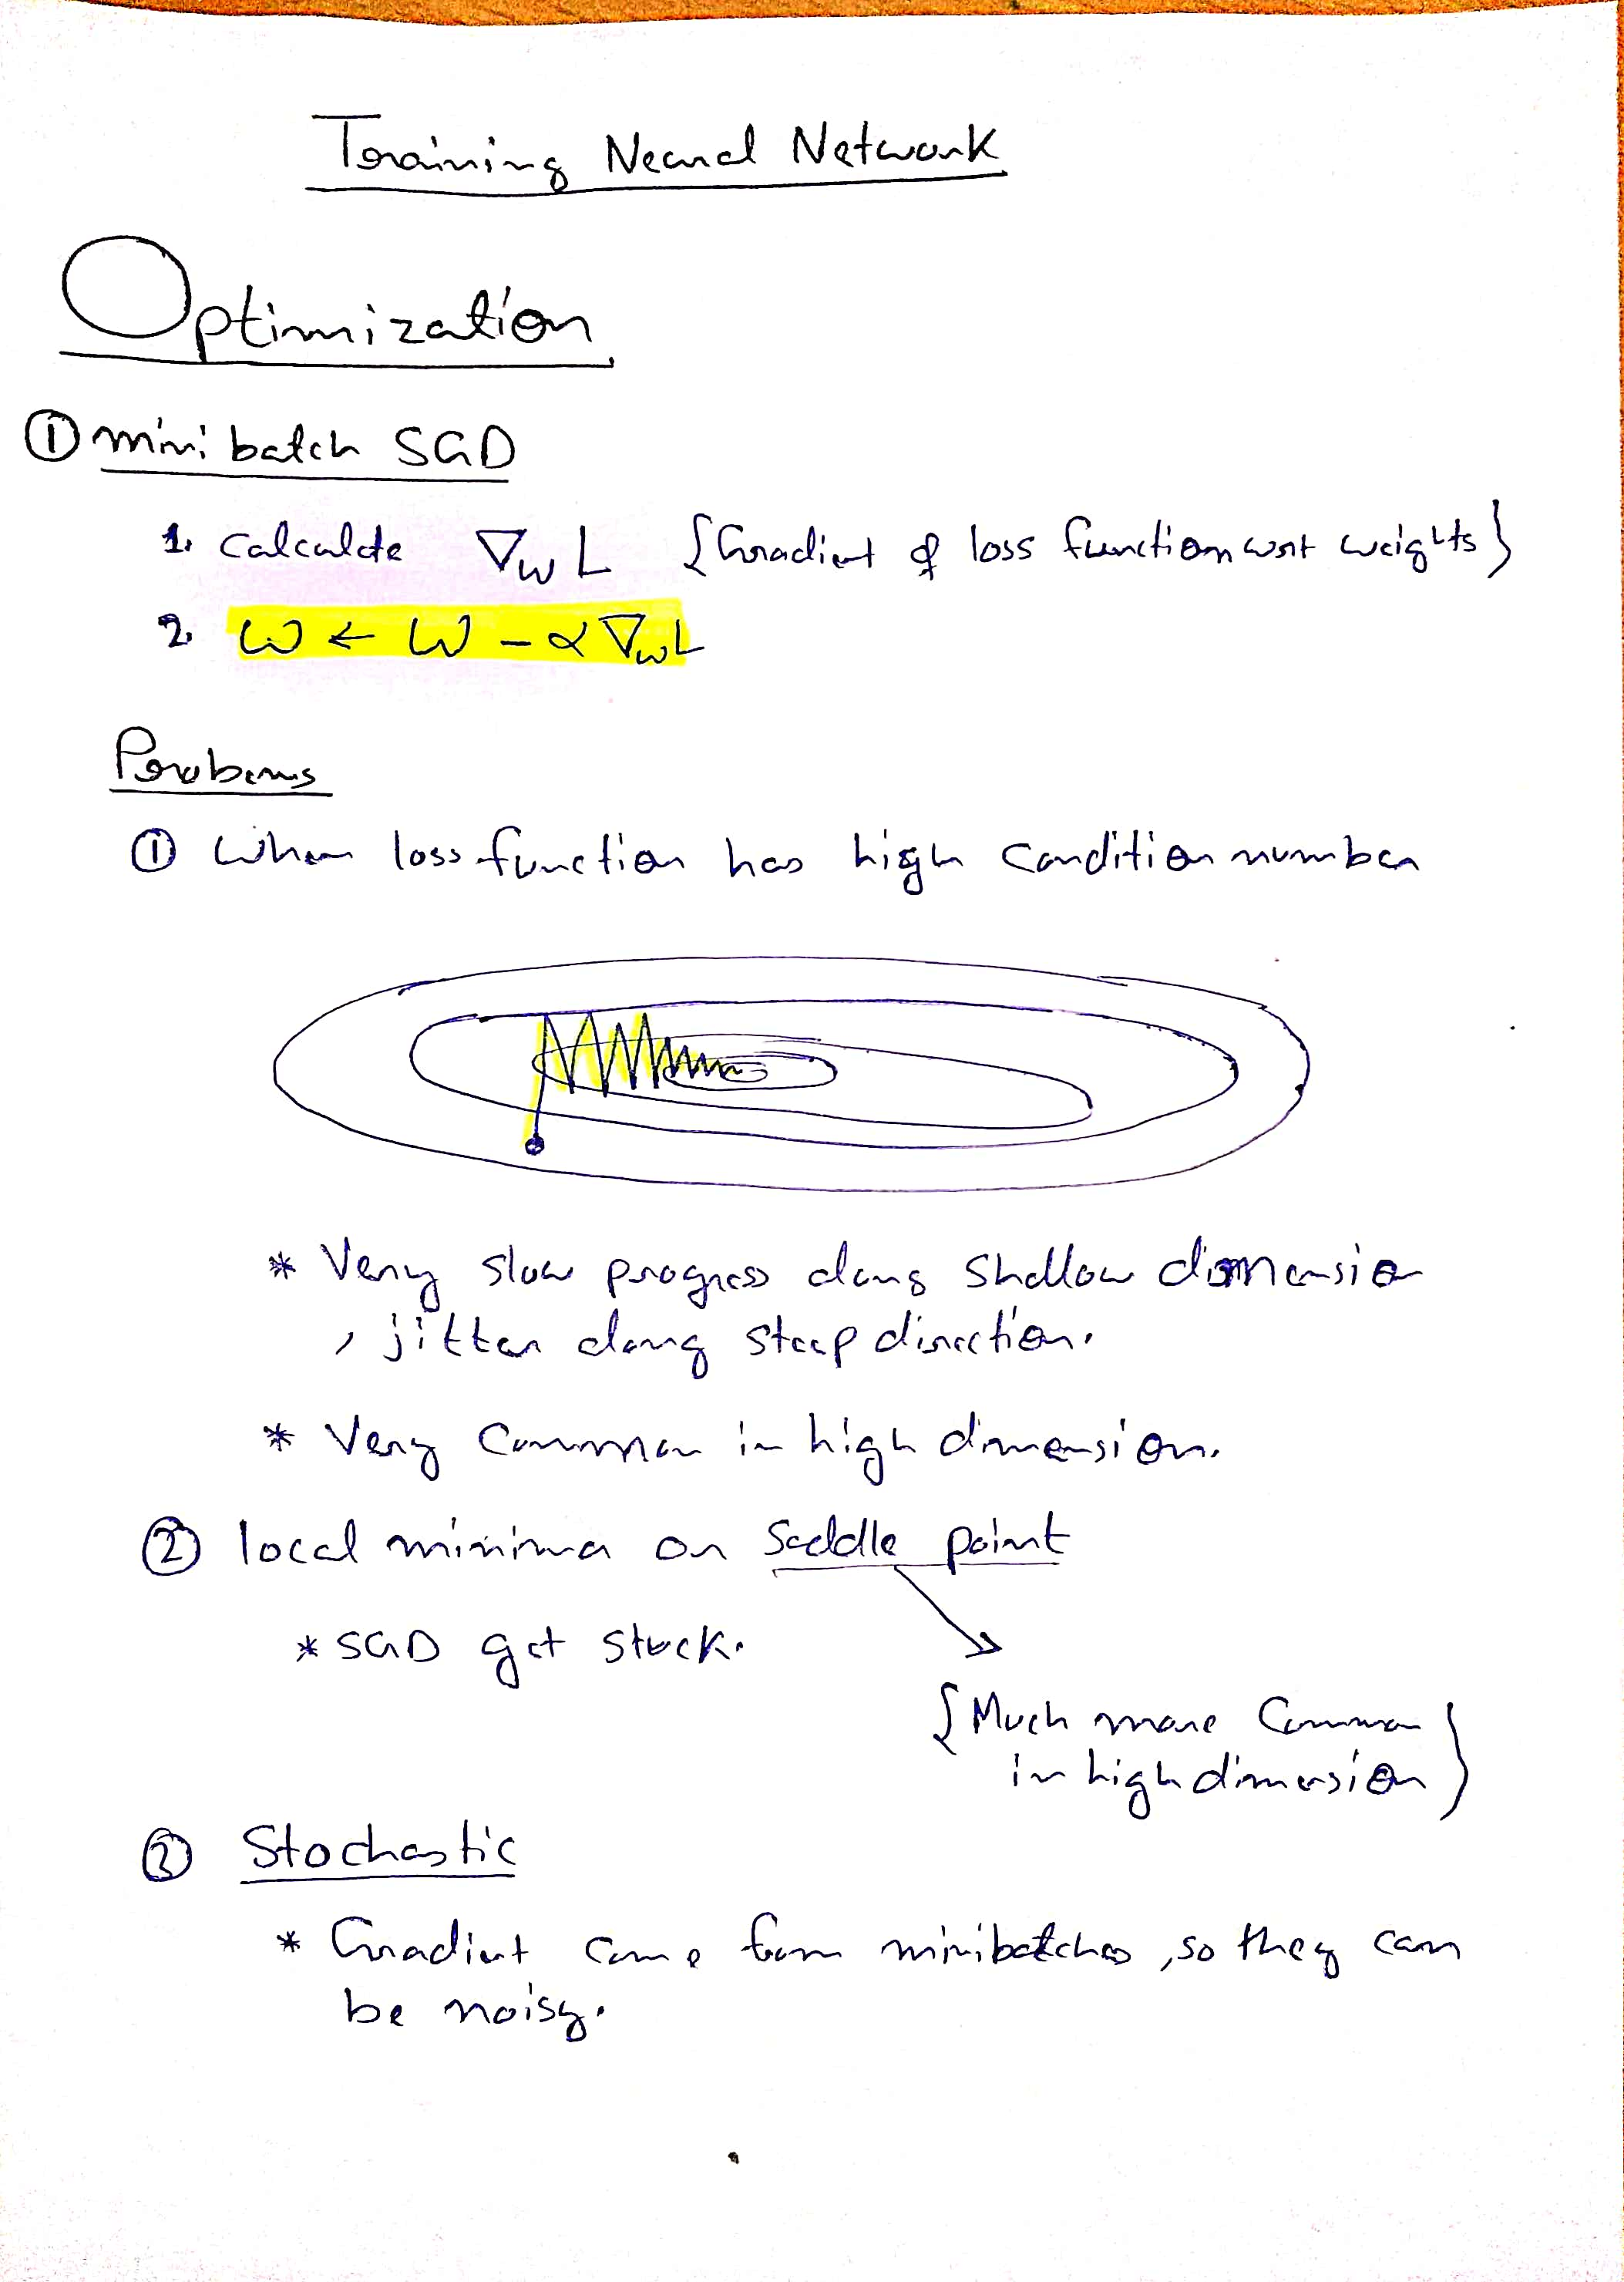 Training Neural Network
Optimization
① mini batch SGD
1. Calculate ∇w L {Gradient of loss function wrt weights}
2. W ← W - α ∇w L
Probems
① When loss function has high Condition number
* Very slow progress along Shallow dimension
, jitter along steep direction.
* Very Common in high dimension.
② local minima or Saddle point
* SGD get stuck.
{Much more Common
in high dimension}
③ Stochastic
* Gradient come from minibatches, so they can
be noisy.